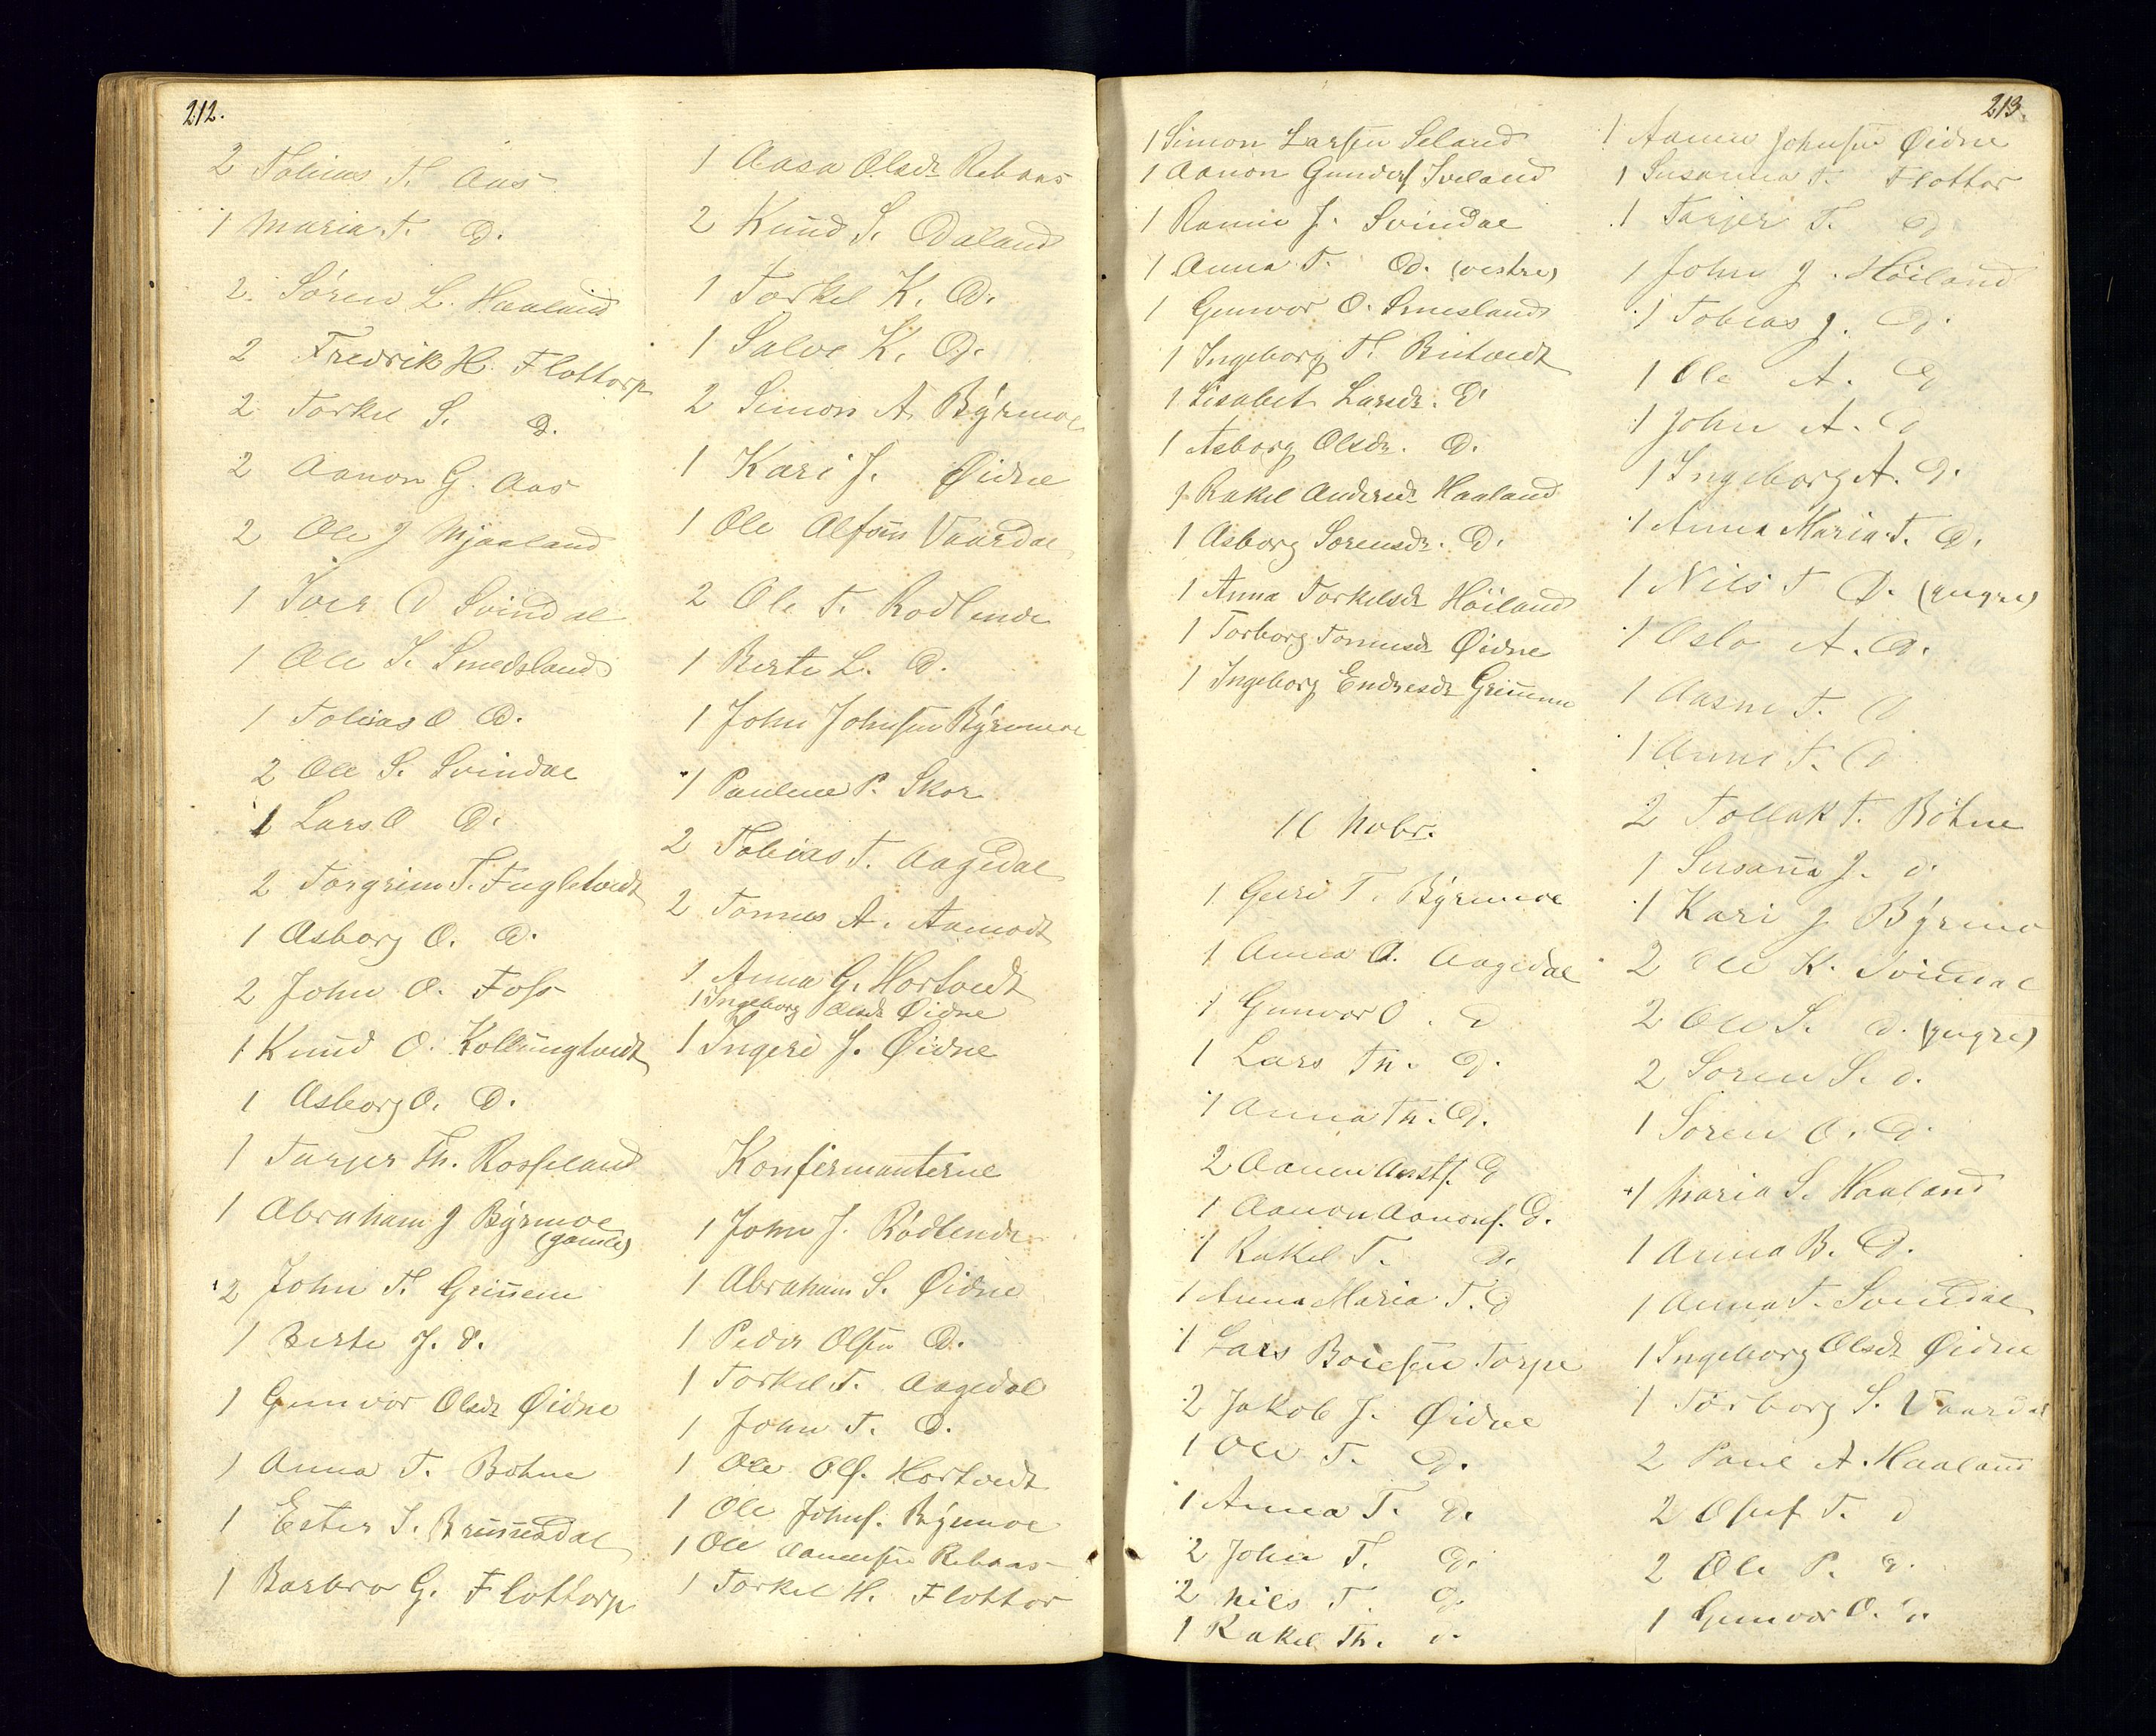 212.
2 Tobias T. Aas
1 Maria T. D.
2. Sören L. Haaland
2 Fredrik H. Flottorp
2 Torkel S. D.
2 Aanon G. Aas
2 Ole J Mjaaland
1 Iver O Svindal
1 Ole T. Smedsland
1 Tobias O D.
2 Ole S. Svindal
1 Lars O D.
2 Torgrim T. Fuglestvedt
1 Asborg O. D.
2 John O. Foss
1 Knud O. Kollungtvedt
1 Asborg O. D.
1 Tarjer Th. Rosseland
1 Abraham J Byrmoe
(gamle)
2 John T. Grinem
1 Berte J. d.
1 Gunvor Olsdr Øidne
1 Anna T. Bohne
1 Ester S. Brunesdal
1 Barbro G. Flottorp
1 Aasa Olsdr Rebaas
2 Knud S. Odaland
1 Torkel K. D.
1 Salve K. D.
2 Simon A. Byrmoe
1 Kari J. Øidne
1 Ole Vaardal
2 Ole T. Rodlende
1 Berte L. D.
1 John Johnsen Byrmoe
1 Pauline P. Skor
2 Tobias T. Aagedal
2 Tomas A. Aamodt
1 Anna G. Hortvedt
1 Ingeborg Olsdr Øidne
1 Ingeri J. Øidne
Konfirmanterne
1 John J. Rödlende
1 Abraham S. Øidne
1 Peder Olsen D.
1 Torkel T. Aagedal
1 John T. D.
1 Ole Ols. Hortvedt
1 Ole Johns. Byrmoe
1 Ole Aanensen Rebaas
1 Torkel H. Flottor
213.
1 Simon Larsen Seland
1 Aanon Gunders Iveland
1 J. Svindal
1 Anna T. D. (vestre)
1 Gunvor O. Smesland
1 Ingeborg T.
1 Lisabet Larsdr. D
1 Asborg Olsdr. D.
1 Rakel Andersdr Haaland
1 Asborg Sorensdr. D.
1 Anna Torkelsdr Höiland
1 Torborg Tomesdr Øidne
1 Ingeborg Endresdr Grinem
11 Nobr.
1 Guri T. Byrmoe
1 Anna A. Aagedal
1 Gunvor O. D
1 Lars Th. D.
1 Anna Th. D.
2 Aanen D
1 Aanon Aanons. D.
1 Rakel T. D.
1 Anna Maria T. D
1 Lars Boiesen Torpe
2 Jakob J. Øidne
1 Ole T. D.
1 Anna T. D.
2 John T. D.
2 Nils T. D.
1 Rakel Th. d.
1 Aanen Johnsen Øidne
1 Susanna T. Flottor
1 Tarjer T. D
1 John J. Höiland
1 Tobias J. D.
1 Ole A. D
1 John A. D
1 Ingeborg A. D.
1 Anna Maria T. D.
1 Nils T D. (yngre)
1 Oslo A. D.
1 Aasne T. D
1 Anne T. D
2 Tollak T. Böhne
1 Susana J. d.
1 Kari J. Byrmo
2 Ole K. Svindal
2 Ole S. D. (yngre)
2 Soren S. d.
1 Soren O. D.
1 Maria S. Haaland
1 Anna B. D.
1 Anna T. Svindal
1 Ingeborg Olsdr Øidne
1 Torborg S. Vaardal
2 Paul A. Haaland
2 T. d
2 Ole P. D.
1 Gunvor O. D.